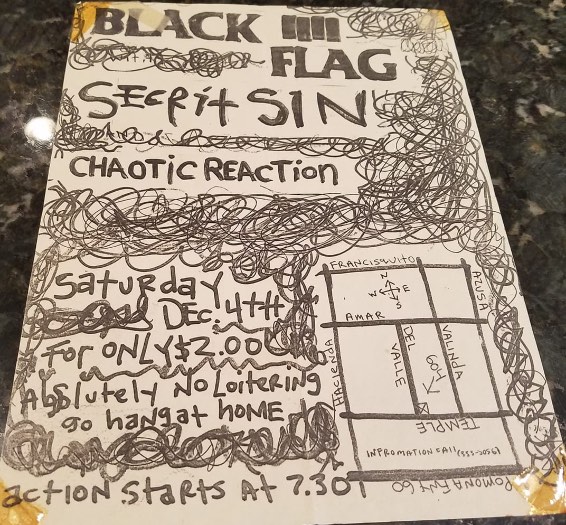 BLACK
FLAG
SECRIT SIN
CHAOTIC REACTION
Saturday
DEC. 4TH
FOR ONLY $2.00
Absolutely No Loitering
go hang at HOME
action starts at 7.30
FRANCISQUITO
AZUSA
N
E
S
W
AMAR
HACIENDA
DEL
VALLE
VALINDA
TEMPLE
INFROMATION CALL
POMONA FWY 60